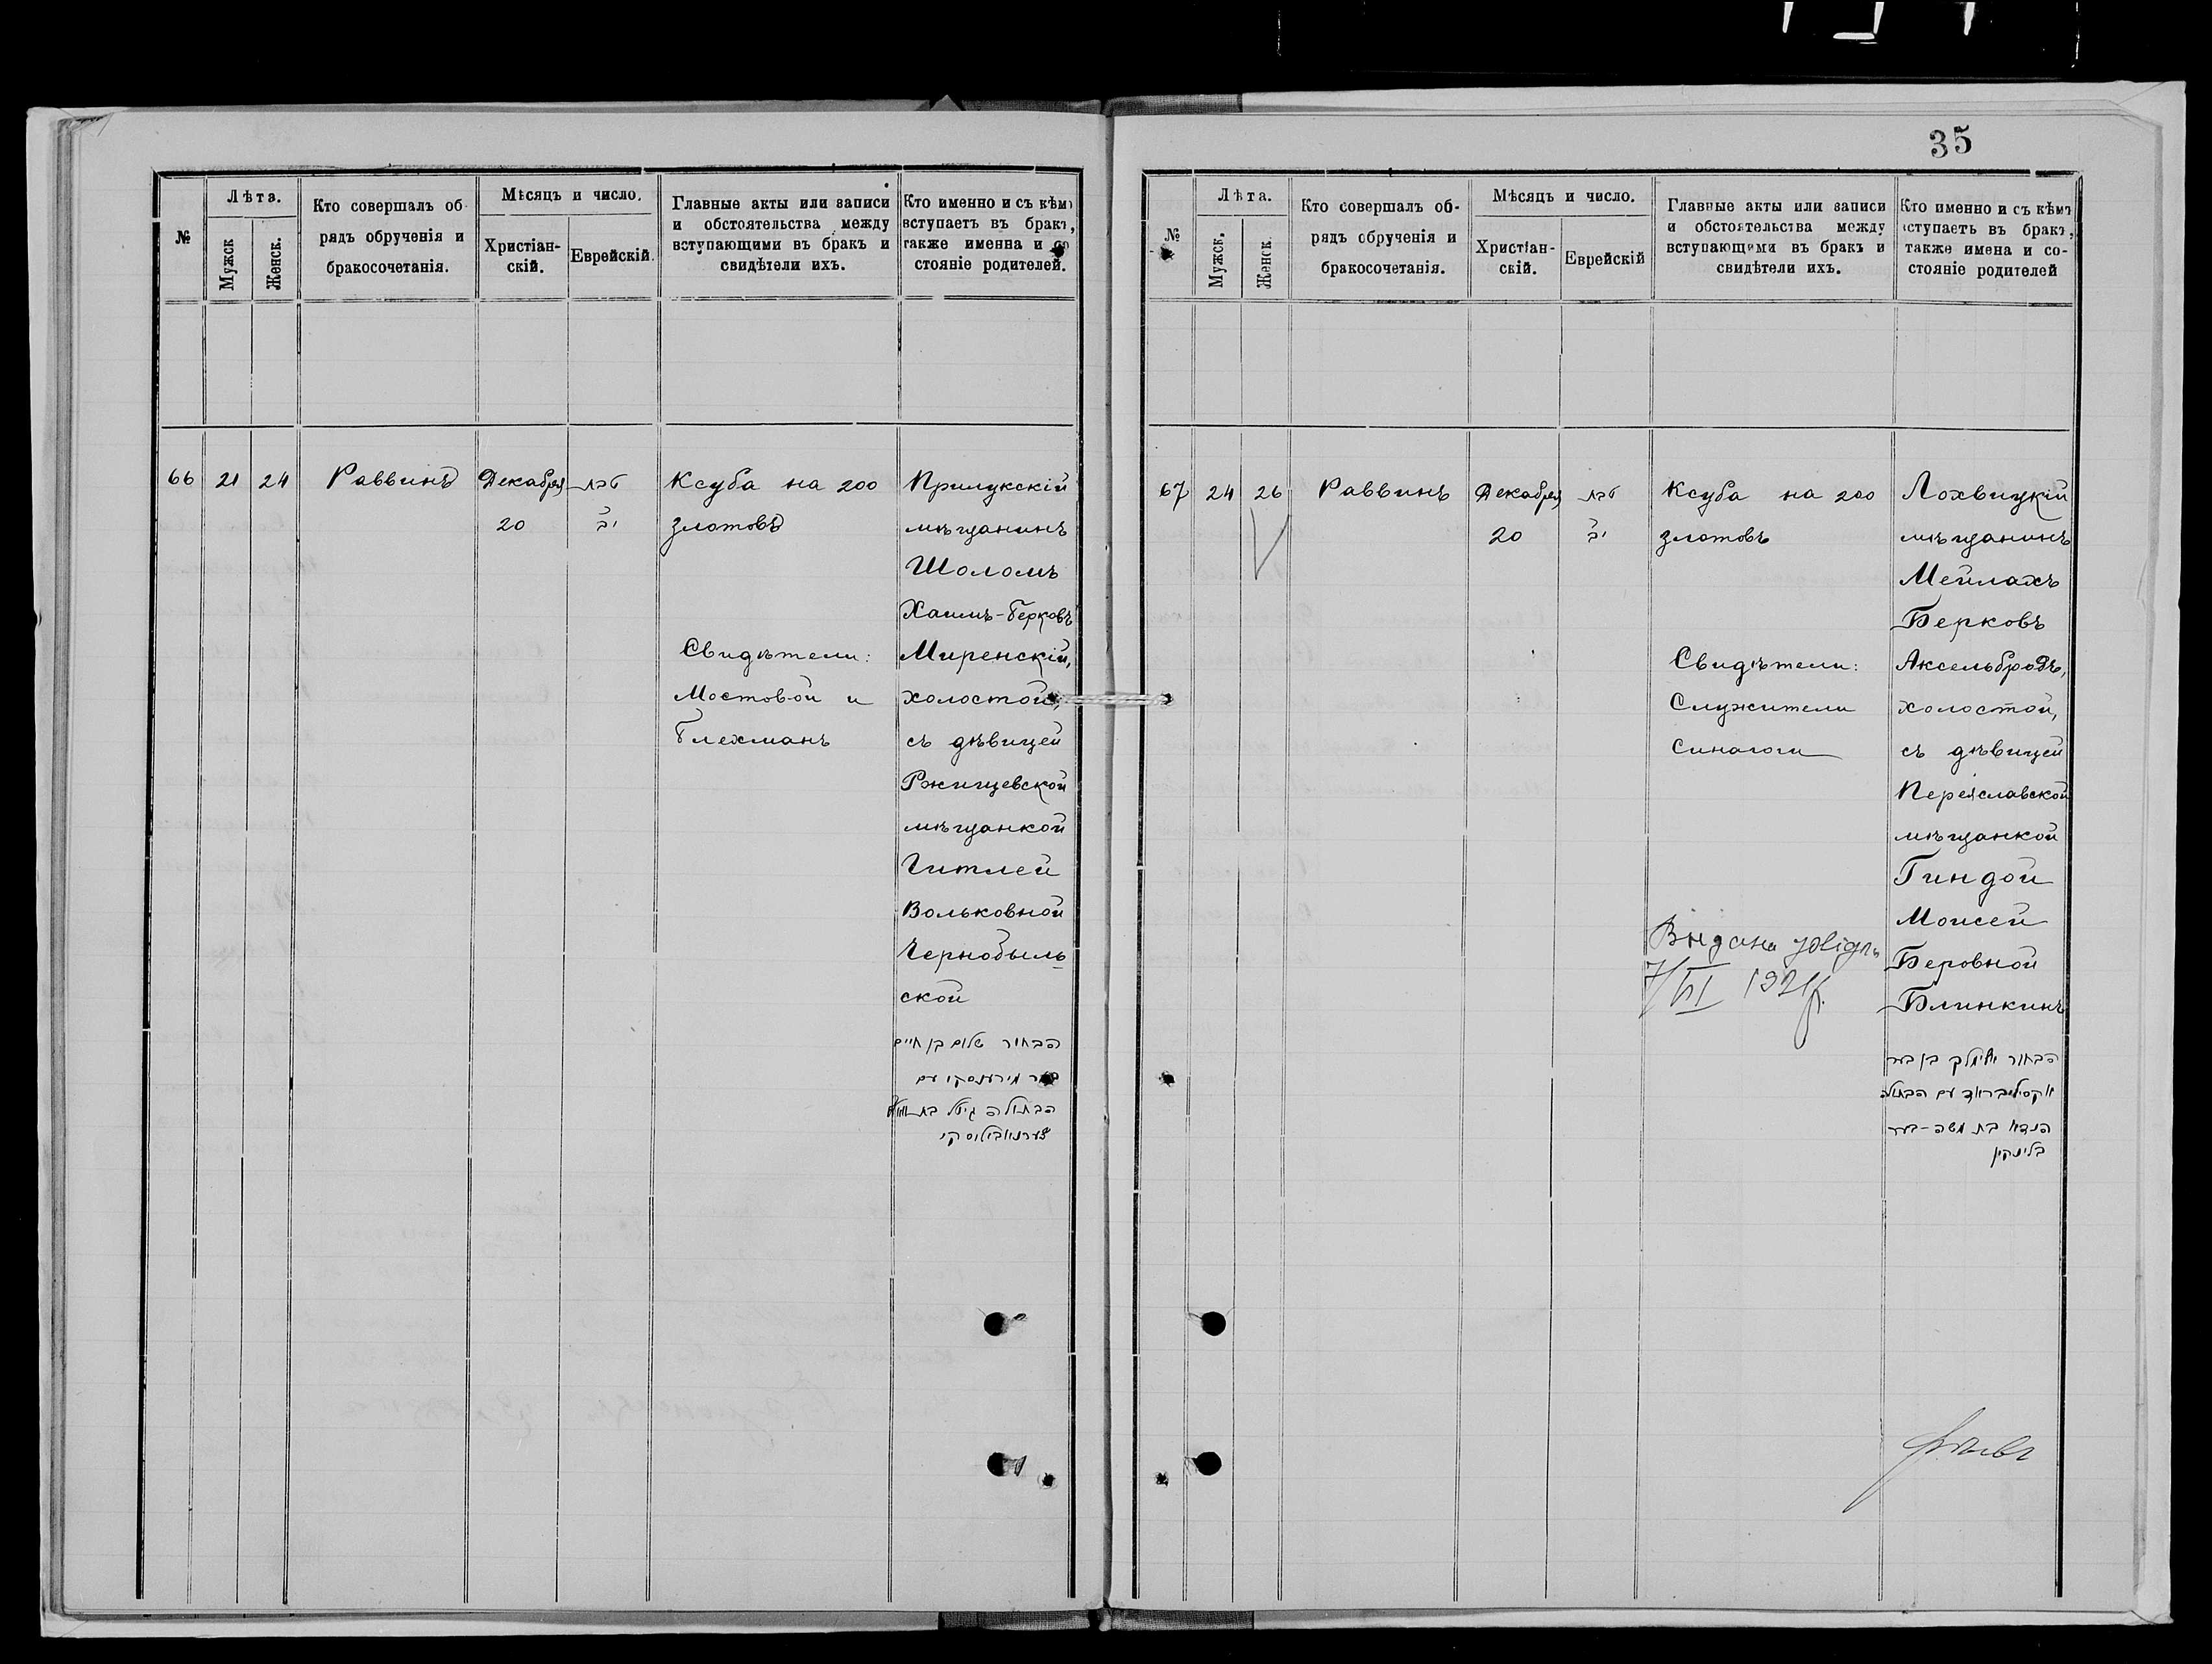 №
Лѣта.
Мужск
Женск.
Кто совершалъ об
рядъ обрученія и
бракосочетанія.
Мѣсяцъ и число.
Христіан-
скій.
Еврейскій.
Главные акты или записи
и обстоятельства между
вступающими въ бракъ и
свидѣтели ихъ.
Кто именно и съ кѣмъ
вступаетъ въ бракъ,
также именна и со
стояніе родителей.
66
21
24
Раввинъ
Декабря
20
טבת
יב
Ксуба на 200
злотовъ
Свидѣтели:
Мостовой и
Блехманъ
Прилукскій
мѣщанинъ
Шоломъ
Хаимъ-Берковъ
Миренскій,
холостой,
съ дѣвицей
Ржищевской
мѣщанкой
Гитлей
Вольковной
Чернобыль
ской
הבחור שלום בן חיים
בער מירענסקי עם
הבתולה גיטל בת
טשערנאבילסקי
35
№
Лѣта.
Мужск.
Женск.
Кто совершалъ об-
рядъ обрученія и
бракосочетанія.
Мѣсяцъ и число.
Христіан-
скій.
Еврейскій
Главные акты или записи
и обстоятельства между
вступающими въ бракъ и
свидѣтели ихъ.
Кто именно и съ кѣмъ
вступаетъ въ бракъ,
также имена и со-
стояніе родителей
67
24
26
Раввинъ
Декабря
20
טבת
יב
Ксуба на 200
злотовъ
Свидѣтели:
Служители
синагоги
Лохвицкій
мѣщанинъ
Мейлахъ
Берковъ
Аксельбродъ,
холостой,
съ дѣвицей
Переяславской
мѣщанкой
Гиндой
Моисей
Беровной
Блинкинъ
הבחור אלימלך בן בער
אקסילבראד עם הבתולה
הינדא בת משה-בער
בלינקין